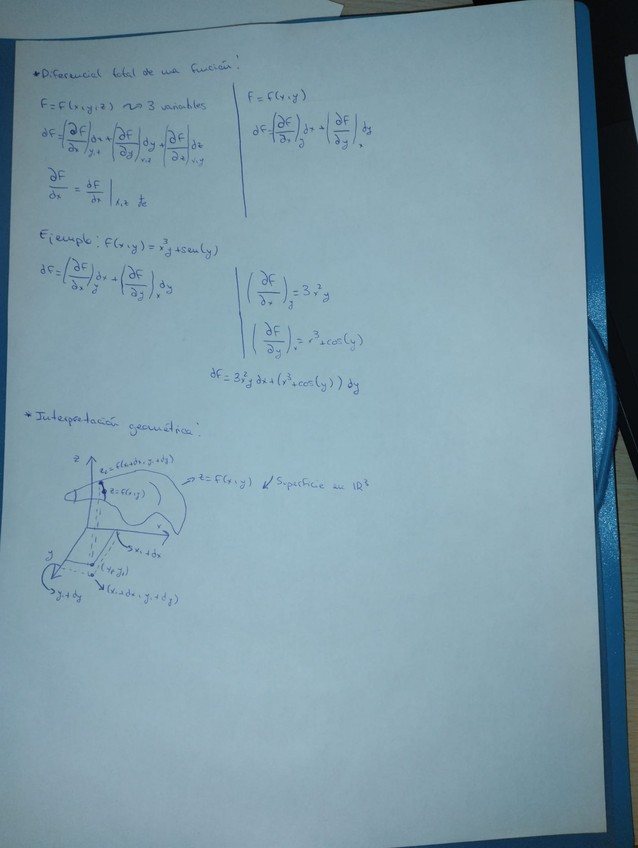 *Diferencial total de una función:
F = F(x,y,z) ~> 3 variables
dF = (∂F/∂x)|y,z dx + (∂F/∂y)|x,z dy + (∂F/∂z)|x,y dz
∂F/∂x = dF/dx |x,z
F = F(x,y)
dF = (∂F/∂x)y dx + (∂F/∂y)x dy
Ejemplo: F(x,y) = x³y + sen(y)
dF = (∂F/∂x)y dx + (∂F/∂y)x dy
(∂F/∂x)y = 3x²y
(∂F/∂y)x = x³ + cos(y)
dF = 3x²y dx + (x³ + cos(y)) dy
*Interpretación geométrica:
z
z = f(x,y)
→ z = F(x,y) ↙ Superficie en ℝ³
x
y